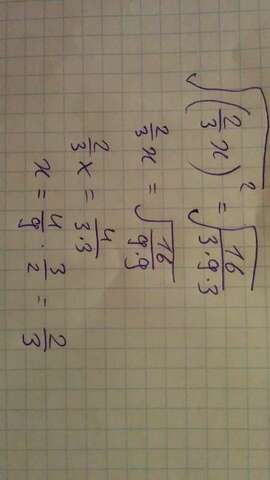 √(2/3 x)² = √16/(3·9·3)
2/3 x = √16/(9·9)
2/3 x = 4/(3·3)
x = 4/9 · 3/2 = 2/3